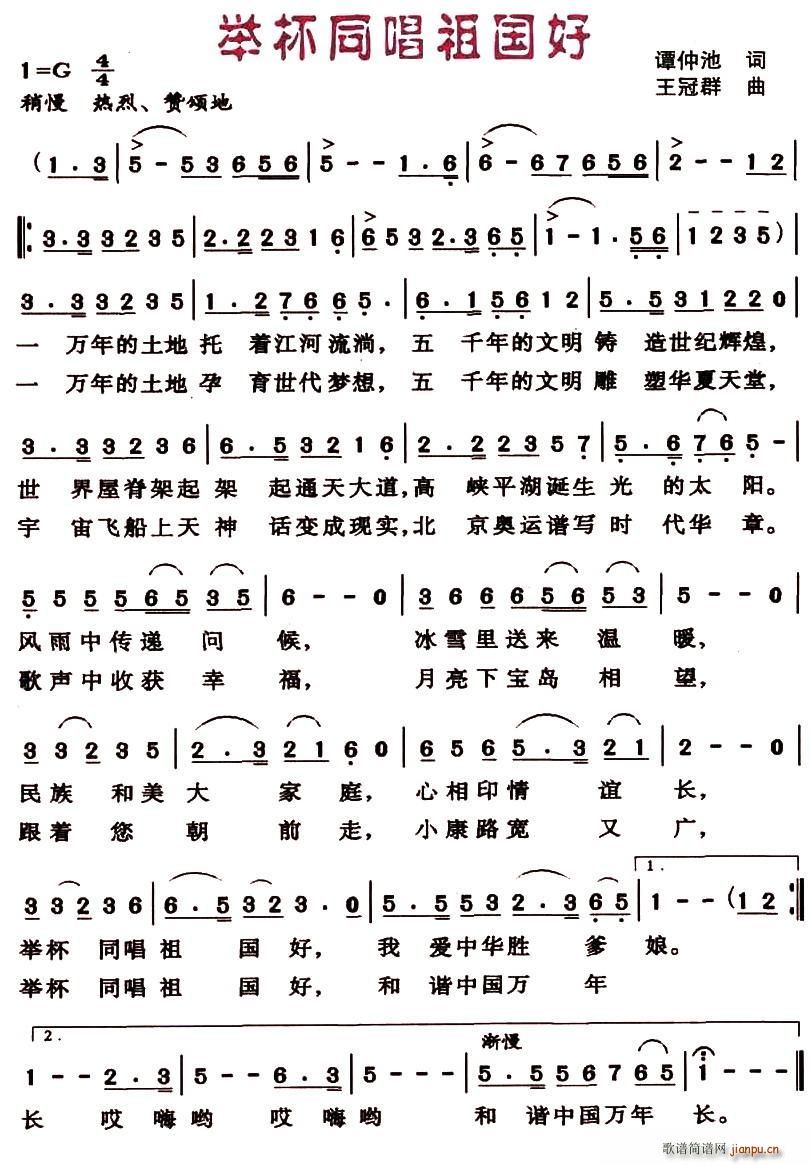 举杯同唱祖国好
1=G 4/4 谭仲池 词
稍慢 热烈、赞颂地 王冠群 曲
(1·3|5-53656|5--1·6|6-67656|2--12
‖:3·33235|2·22316|6532·365|1-1·56|1235)
3·33235|1·27665·|6·15612|5·531220
一 万年的土地 托 着江河流淌，五 千年的文明 铸 造世纪辉煌，
一 万年的土地 孕 育世代梦想，五 千年的文明 雕 塑华夏天堂，
3·33236|6·53216|2·22357|5·6765-
世 界屋脊架起 架 起通天大道，高 峡平湖诞生 光 的太 阳。
宇 宙飞船上天 神 话变成现实，北 京奥运谱写 时 代华 章。
5 5 5 5 6 5 3 5|6--0|3 6 6 6 6 5 6 5 3|5--0
风雨中传递 问 候， 冰雪里送来 温 暖，
歌声中收获 幸 福， 月亮下宝岛 相 望，
3 3 2 3 5|2·3 2 1 6 0|6 5 6 5·3 6 2 1|2--0
民族 和美 大 家 庭，心相印情 谊 长，
跟着 您 朝 前 走，小康路宽 又 广，
1.
3 3 2 3 6|6·5 3 2 3·0|5·5 5 3 2·3 6 5|1--(1 2:‖
举杯 同唱 祖 国 好， 我 爱中华胜 爹 娘。
举杯 同唱 祖 国 好， 和 谐中国万 年
2. 渐慢
1--2·3|5--6·3|5---|5·5 5 6 7 6 5|1---‖
长 哎 嗨哟 哎 嗨哟 和 谐中国万年 长。
歌谱简谱网
jianpu.cn